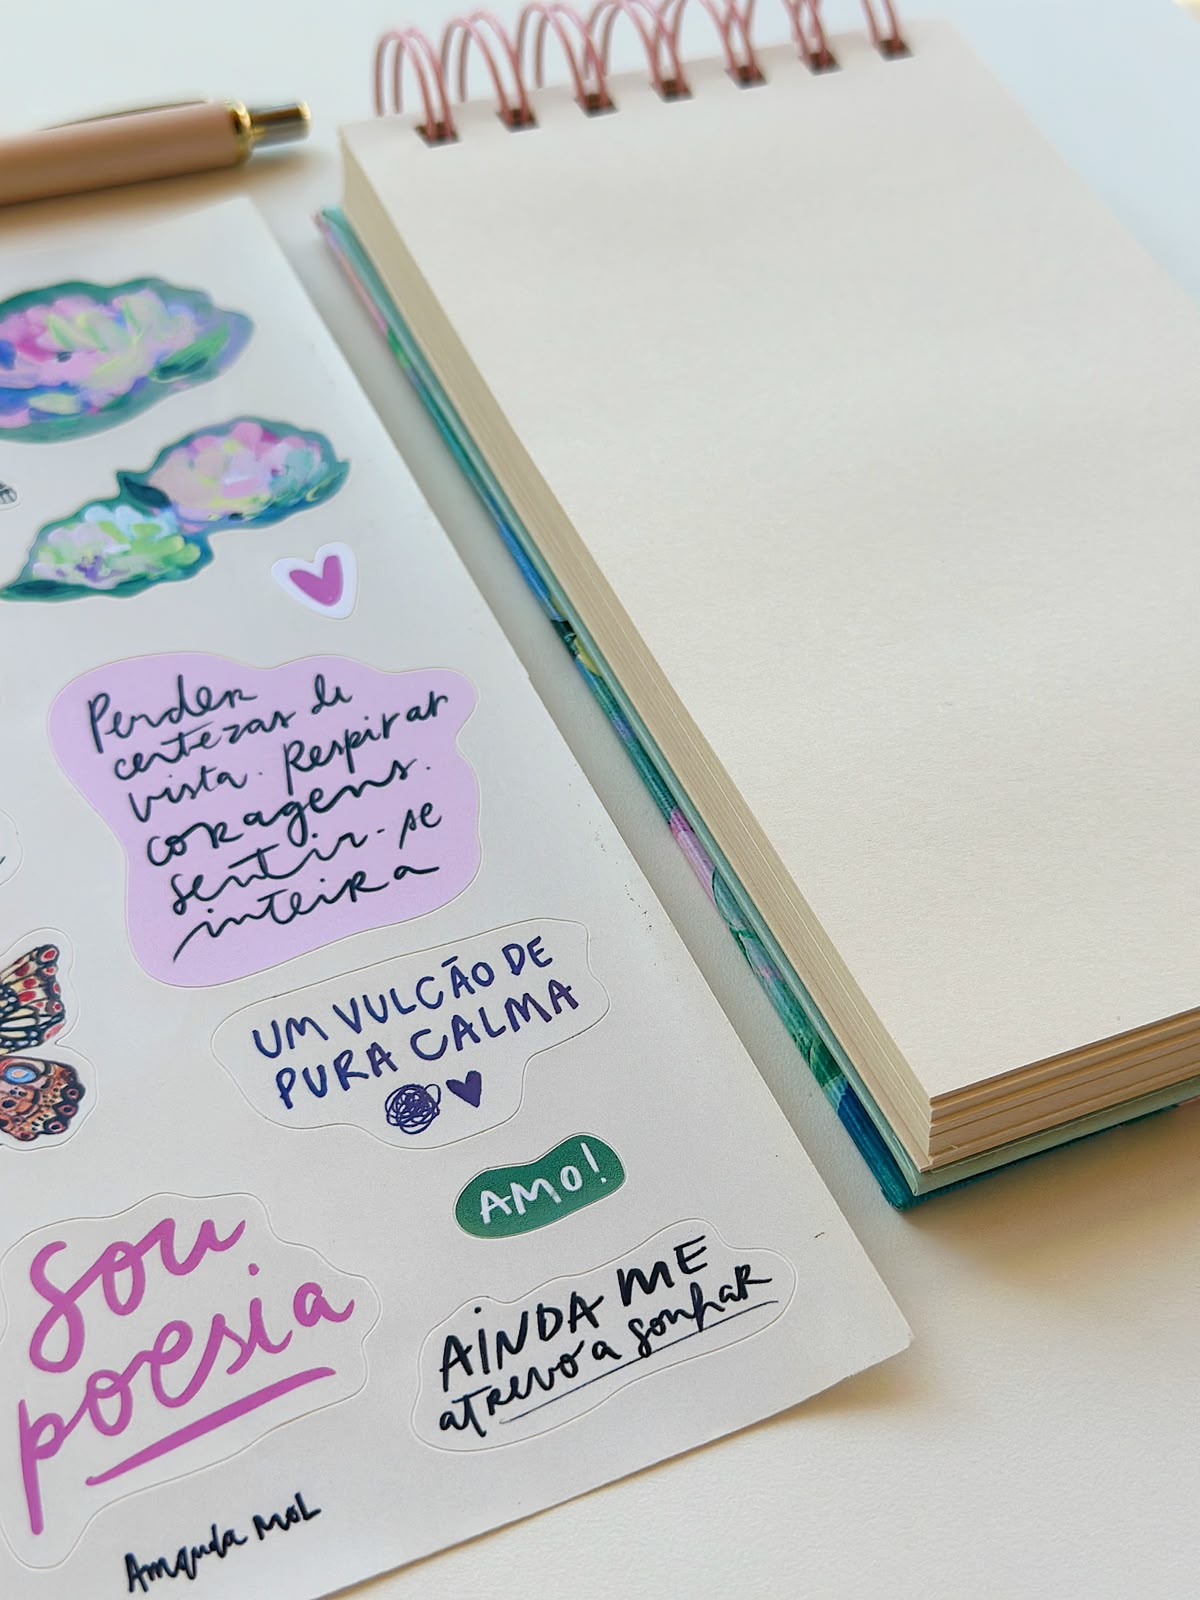 Perder
certezas de
vista. Respirar
coragens.
sentir-se
inteira
UM VULCÃO DE
PURA CALMA
AMO!
Sou
poesia
AINDA ME
atrevo a sonhar
Amanda MOL